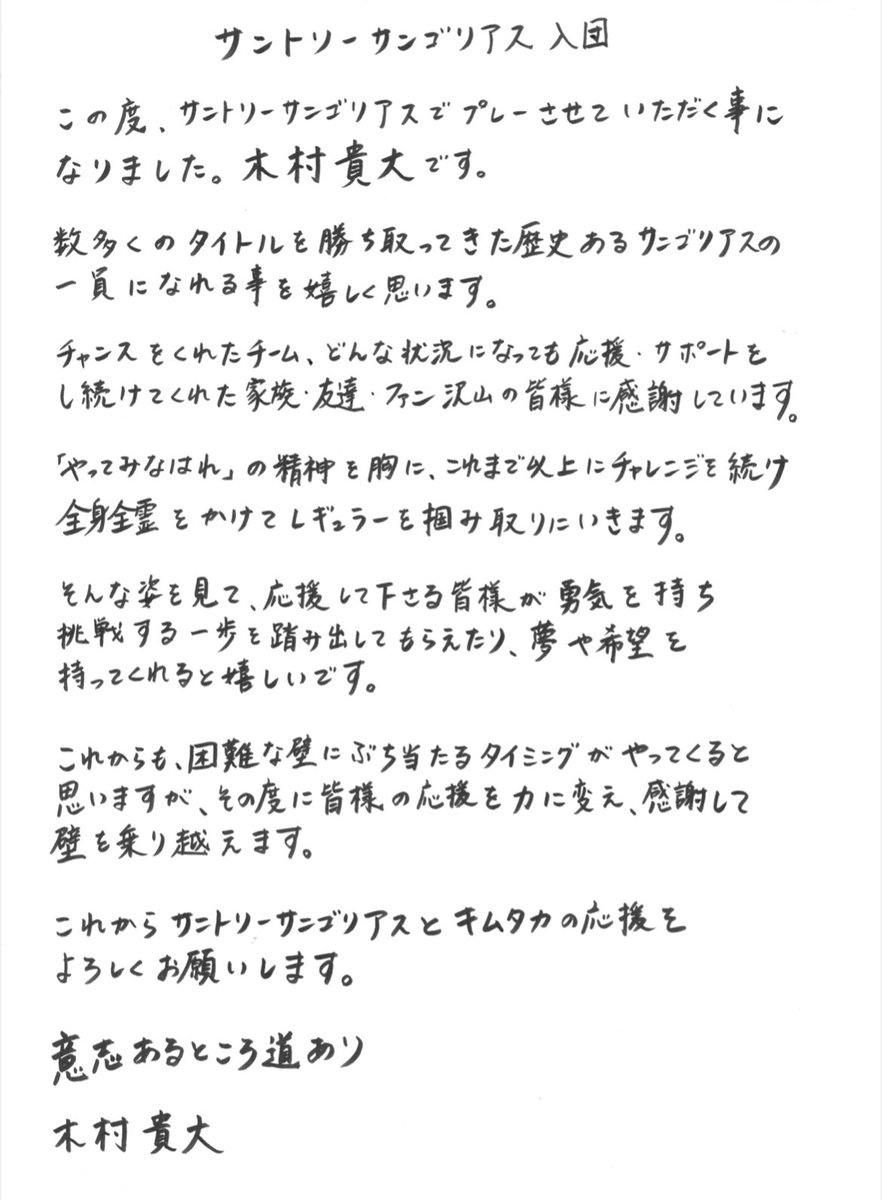 サントリーサンゴリアス 入団
この度、サントリーサンゴリアスでプレーさせていただく事に
なりました。木村貴大です。
数多くのタイトルを勝ち取ってきた歴史あるサンゴリアスの
一員になれる事を嬉しく思います。
チャンスをくれたチーム、どんな状況になっても応援・サポートを
し続けてくれた家族・友達・ファン沢山の皆様に感謝しています。
「やってみなはれ」の精神を胸に、これまで以上にチャレンジを続け
全身全霊をかけてレギュラーを掴み取りにいきます。
そんな姿を見て、応援して下さる皆様が勇気を持ち
挑戦する一歩を踏み出してもらえたり、夢や希望を
持ってくれると嬉しいです。
これからも、困難な壁にぶち当たるタイミングがやってくると
思いますが、その度に皆様の応援を力に変え、感謝して
壁を乗り越えます。
これからサントリーサンゴリアスとキムタカの応援を
よろしくお願いします。
意志あるところ道あり
木村貴大